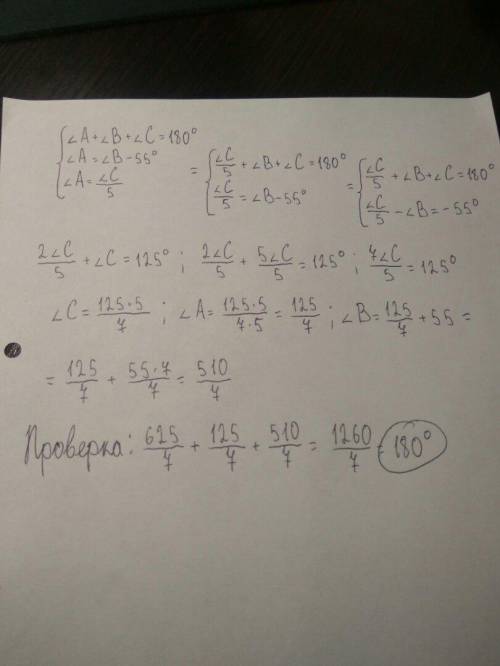 ∠A+∠B+∠C=180°
∠A=∠B-55°
∠A=∠C/5
= ∠C/5+∠B+∠C=180°
∠C/5=∠B-55°
= ∠C/5+∠B+∠C=180°
∠C/5-∠B=-55°
2∠C/5+∠C=125°; 2∠C/5+5∠C/5=125°; 7∠C/5=125°
∠C=125·5/7; ∠A=125·5/7·5=125/7; ∠B=125/7+55=
=125/7+55·7/7=510/7
Проверка: 625/7+125/7+510/7=1260/7=180°